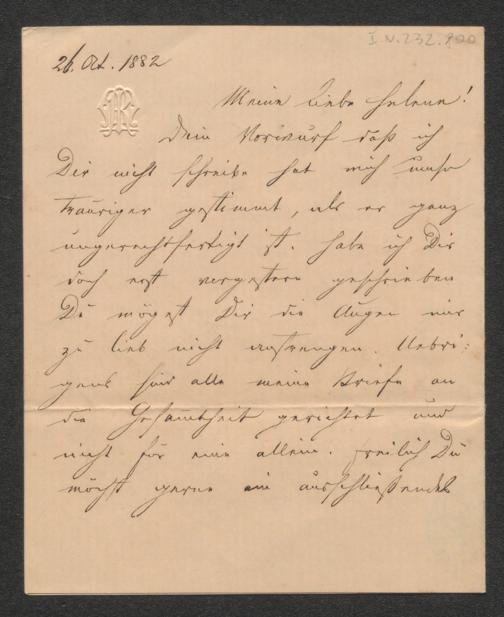 I.N. 232.900
26. Okt. 1882
Meine liebe Helene!
Dein Vorwurf daß ich
Dir nicht schreibe hat mich umso
trauriger gestimmt, als er ganz
ungerechtfertigt ist. Habe ich Dir
doch erst vorgestern geschrieben
Du mögest Dir die Augen mir
zu lieb nicht anstrengen. Uebri:
gens sind alle meine Briefe an
die Gesammtheit gerichtet und
nicht für eine allein. Freilich Du
möchst gerne ein ausschließendes